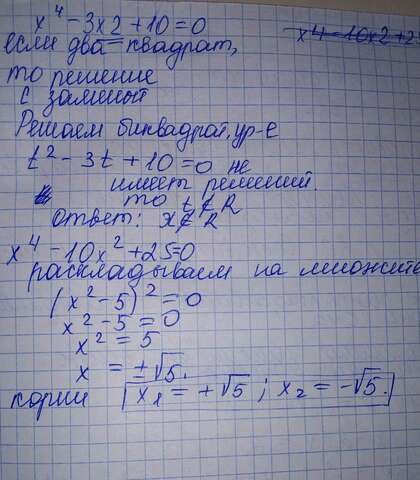 x⁴ - 3x2 + 10 = 0
x4 - 10x2 + 2
если два = квадрат,
то решение
с заменой
Решаем биквадрат, ур-е
t² - 3t + 10 = 0 не
имеет решений.
то t ∉ R
ответ: x ∉ R
x⁴ - 10x² + 25 = 0
раскладываем на множите
(x² - 5)² = 0
x² - 5 = 0
x² = 5
x = ±√5.
корни x₁ = +√5 ; x₂ = -√5.